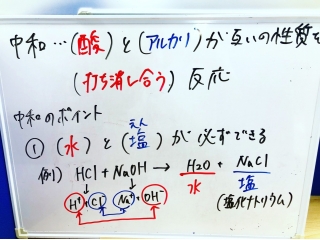 中和…(酸)と(アルカリ)が互いの性質を
(打ち消し合う)反応
中和のポイント
えん
①(水)と(塩)が必ずできる
例) HCl + NaOH → H2O + NaCl
水 塩
H⁺ Cl⁻ Na⁺ OH⁻
(塩化ナトリウム)